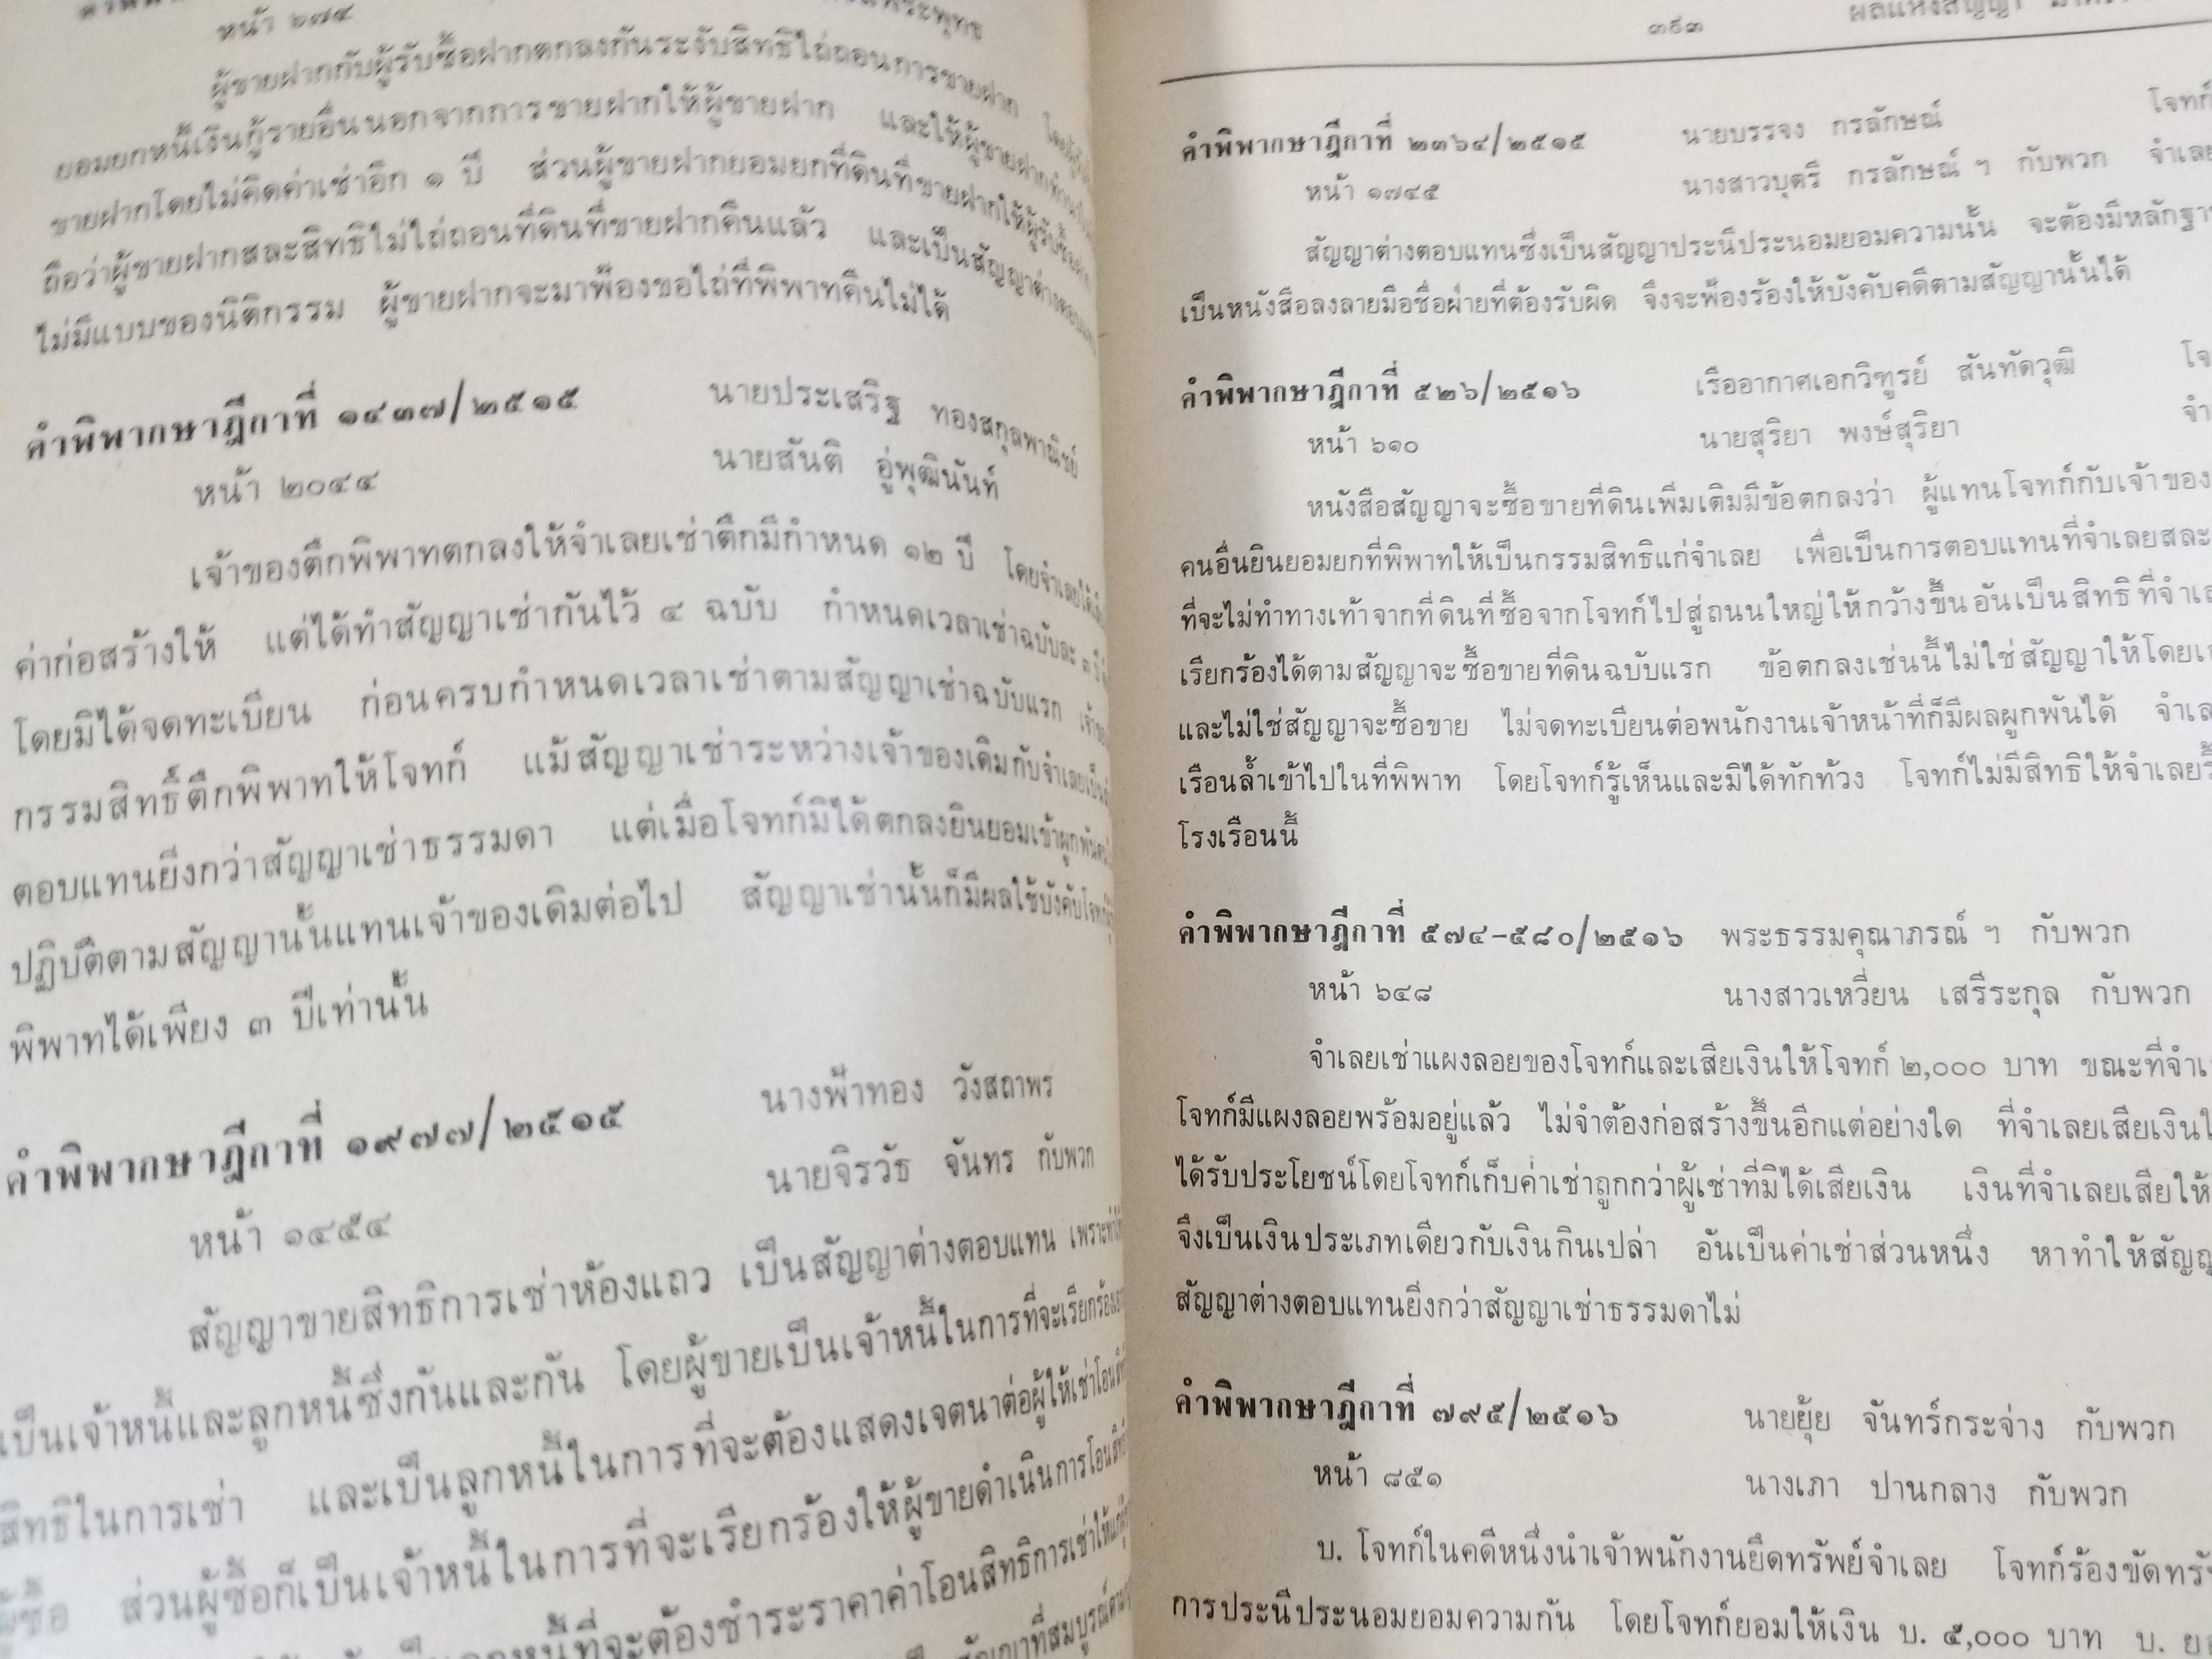 หน้า ๖๗๔
ผู้ขายฝากกับผู้รับซื้อฝากตกลงกันระงับสิทธิไถ่ถอนการขายฝาก
ยอมยกหนี้เงินกู้รายอื่นนอกจากการขายฝากให้ผู้ขายฝาก และให้ผู้ขายฝาก
ขายฝากโดยไม่คิดค่าเช่าอีก ๑ ปี ส่วนผู้ขายฝากยอมยกที่ดินที่ขายฝากให้ผู้รับซื้อฝาก
ถือว่าผู้ขายฝากสละสิทธิไม่ไถ่ถอนที่ดินที่ขายฝากคืนแล้ว และเป็นสัญญาต่างตอบแทน
ไม่มีแบบของนิติกรรม ผู้ขายฝากจะมาฟ้องขอไถ่ที่พิพาทคืนไม่ได้
คำพิพากษาฎีกาที่ ๑๔๓๗/๒๕๑๕ นายประเสริฐ ทองสกุลพาณิชย์
หน้า ๒๐๔๔ นายสันติ อู่พุฒินันท์
เจ้าของตึกพิพาทตกลงให้จำเลยเช่าตึกมีกำหนด ๑๒ ปี โดยจำเลย
ค่าก่อสร้างให้ แต่ได้ทำสัญญาเช่ากันไว้ ๔ ฉบับ กำหนดเวลาเช่าฉบับละ ๓ ปี
โดยมิได้จดทะเบียน ก่อนครบกำหนดเวลาเช่าตามสัญญาเช่าฉบับแรก
กรรมสิทธิ์ตึกพิพาทให้โจทก์ แม้สัญญาเช่าระหว่างเจ้าของเดิมกับจำเลยเป็น
ตอบแทนยิ่งกว่าสัญญาเช่าธรรมดา แต่เมื่อโจทก์มิได้ตกลงยินยอมเข้าผูกพัน
ปฏิบัติตามสัญญานั้นแทนเจ้าของเดิมต่อไป สัญญาเช่านั้นก็มีผลใช้บังคับโจทก์
พิพาทได้เพียง ๓ ปีเท่านั้น
คำพิพากษาฎีกาที่ ๑๙๗๗/๒๕๑๕ นางฟ้าทอง วังสถาพร
หน้า ๑๔๕๔ นายจิรวัธ จันทร กับพวก
สัญญาขายสิทธิการเช่าห้องแถว เป็นสัญญาต่างตอบแทน เพราะ
เป็นเจ้าหนี้และลูกหนี้ซึ่งกันและกัน โดยผู้ขายเป็นเจ้าหนี้ในการที่จะเรียกร้อง
สิทธิในการเช่า และเป็นลูกหนี้ในการที่จะต้องแสดงเจตนาต่อผู้ให้เช่า
ผู้ซื้อ ส่วนผู้ซื้อก็เป็นเจ้าหนี้ในการที่จะเรียกร้องให้ผู้ขายดำเนินการโอนสิทธิ
ที่จะต้องชำระราคาค่าโอนสิทธิการเช่าให้แก่
๓๕๓ ผลแห่งสัญญา
คำพิพากษาฎีกาที่ ๒๓๖๔/๒๕๑๕ นายบรรจง กรลักษณ์ โจทก์
หน้า ๑๗๔๕ นางสาวบุตรี กรลักษณ์ ฯ กับพวก จำเลย
สัญญาต่างตอบแทนซึ่งเป็นสัญญาประนีประนอมยอมความนั้น จะต้องมีหลักฐาน
เป็นหนังสือลงลายมือชื่อฝ่ายที่ต้องรับผิด จึงจะฟ้องร้องให้บังคับคดีตามสัญญานั้นได้
คำพิพากษาฎีกาที่ ๕๒๖/๒๕๑๖ เรืออากาศเอกวิฑูรย์ สันทัดวุฒิ
หน้า ๖๑๐ นายสุริยา พงษ์สุริยา
หนังสือสัญญาจะซื้อขายที่ดินเพิ่มเติมมีข้อตกลงว่า ผู้แทนโจทก์กับเจ้าของ
คนอื่นยินยอมยกที่พิพาทให้เป็นกรรมสิทธิแก่จำเลย เพื่อเป็นการตอบแทนที่จำเลยสละ
ที่จะไม่ทำทางเท้าจากที่ดินที่ซื้อจากโจทก์ไปสู่ถนนใหญ่ให้กว้างขึ้นอันเป็นสิทธิที่
เรียกร้องได้ตามสัญญาจะซื้อขายที่ดินฉบับแรก ข้อตกลงเช่นนี้ไม่ใช่สัญญาให้โดย
และไม่ใช่สัญญาจะซื้อขาย ไม่จดทะเบียนต่อพนักงานเจ้าหน้าที่ก็มีผลผูกพันได้
เรือนล้ำเข้าไปในที่พิพาท โดยโจทก์รู้เห็นและมิได้ทักท้วง โจทก์ไม่มีสิทธิให้จำเลย
โรงเรือนนี้
คำพิพากษาฎีกาที่ ๕๗๔-๕๘๐/๒๕๑๖ พระธรรมคุณาภรณ์ ฯ กับพวก
หน้า ๖๔๘ นางสาวเหวี่ยน เสรีระกุล กับพวก
จำเลยเช่าแผงลอยของโจทก์และเสียเงินให้โจทก์ ๒,๐๐๐ บาท ขณะที่
โจทก์มีแผงลอยพร้อมอยู่แล้ว ไม่จำต้องก่อสร้างขึ้นอีกแต่อย่างใด ที่จำเลยเสียเงิน
ได้รับประโยชน์โดยโจทก์เก็บค่าเช่าถูกกว่าผู้เช่าที่มิได้เสียเงิน เงินที่จำเลยเสียให้
จึงเป็นเงินประเภทเดียวกับเงินกินเปล่า อันเป็นค่าเช่าส่วนหนึ่ง หาทำให้
สัญญาต่างตอบแทนยิ่งกว่าสัญญาเช่าธรรมดาไม่
คำพิพากษาฎีกาที่ ๗๙๕/๒๕๑๖ นายยุ้ย จันทร์กระจ่าง กับพวก
หน้า ๘๕๑ นางเภา ปานกลาง กับพวก
บ. โจทก์ในคดีหนึ่งนำเจ้าพนักงานยึดทรัพย์จำเลย โจทก์ร้องขัด
การประนีประนอมยอมความกัน โดยโจทก์ยอมให้เงิน บ. ๕,๐๐๐ บาท บ.